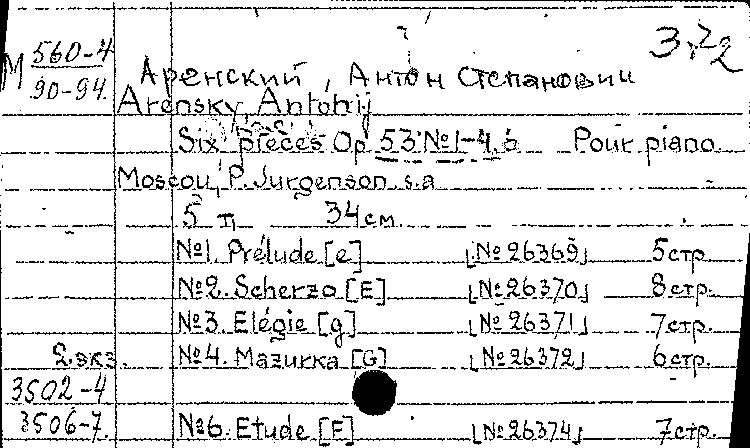 3.22
М 560-4
90-94
Аренский, Антон Степанович
Arensky, Antonij
Six pièces Op 53 №1-4, 6 Pour piano
Moscou, P. Jurgenson s.a
5 т, 34 см.
№1. Prélude [e] [№26369] 5 стр.
№2. Scherzo [E] [№26370] 8 стр.
№3. Elégie [g] [№26371] 7 стр.
2. экз. №4. Mazurka [G] [№26372] 6 стр.
3502-4
3506-7. №6. Etude [F] [№26374] 7 стр.